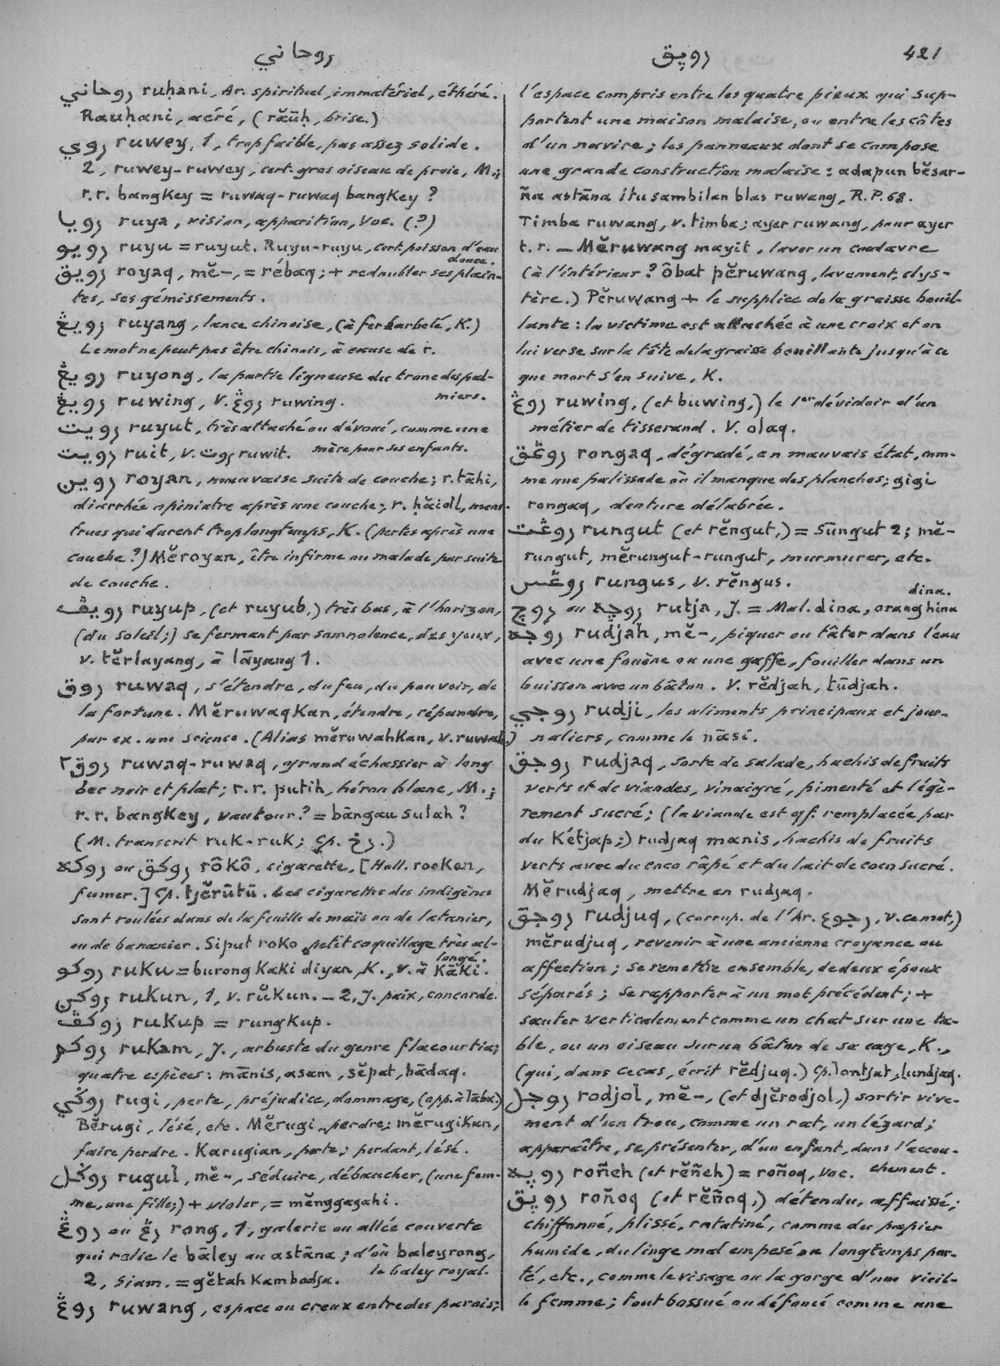 روحاني
روڽق
421
روحاني ruḥani, Ar. spirituel, immatériel, éthéré.
Rauḥani, aéré, (răūḥ, brise.)
روي ruwey, 1, trop faible, pas assez solide.
2, ruwey-ruwey, cert. gros oiseau de proie, M.;
r.r. bangkey = ruwaq-ruwaq bangkey ?
رويا ruya, vision, apparition, Voc. (?)
رويو ruyu = ruyut. Ruyu-ruyu, cert. poisson d'eau
douce.
رويق royaq, mĕ-, = rébaq; + redoubler ses plain-
tes, ses gémissements.
رويڠ ruyang, lance chinoise, (à fer barbelé, K.)
Le mot ne peut pas être chinois, à cause de r.
رويڠ ruyong, la partie ligneuse du tronc des pal-
miers.
رويڠ ruwing, V. روڠ ruwing.
رويت ruyut, très attaché ou dévoué, comme une
mère pour ses enfants.
رويت ruit, v. روت ruwit.
روين royan, mauvaise suite de couche; r. tāhi,
diarrhée opiniâtre après une couche; r. ḥăidl, mens-
trues qui durent trop longtemps, K. (pertes après une
couche ?) Mĕroyan, être infirme ou malade par suite
de couche.
رويڤ ruyup, (et ruyub,) très bas, à l'horizon,
(du soleil;) se fermant par somnolence, des yeux,
v. tĕrlayang, à lāyang 1.
روق ruwaq, s'étendre, du feu, du pouvoir, de
la fortune. Mĕruwaqkan, étendre, répandre,
par ex. une science. (Alias mĕruwahkan, v. ruwah.)
روق٢ ruwaq-ruwaq, grand échassier à long
bec noir et plat; r.r. putih, héron blanc, M.;
r.r. bangkey, vautour ? = bāngau sulah ?
(M. transcrit ruk-ruk; Cp. رخ.)
روكو ou روكق rôkô, cigarette, [Holl. rooken,
fumer.] Cp. tjĕrūtū. Les cigarettes des indigènes
sont roulées dans de la feuille de maïs ou de latanier,
ou de bananier. Siput roko, petit coquillage très al-
longé.
روكو ruku = burong kaki diyan, K., v. à Kāki.
روكن rukun, 1, v. rŭkun. — 2, J. paix, concorde.
روكڤ rukup = rungkup.
روكم rukam, J., arbuste du genre flacourtia;
quatre espèces: mānis, asam, sĕpat, bādaq.
روڬي rugi, perte, préjudice, dommage, (opp. à lāba.)
Bĕrugi, lésé, etc. Mĕrugi, perdre; mĕrugikan,
faire perdre. Karugian, perte; perdant, lésé.
روڬل rugul, mĕ-, séduire, débaucher, (une fem-
me, une fille;) + violer, = mĕnggagahi.
روڠ ou رڠ rong, 1, galerie ou allée couverte
qui relie le bāley au astāna; d'où baley rong,
le baley royal.
2, Siam. = gĕtah Kambodja.
روڠ ruwang, espace ou creux entre des parois;
l'espace compris entre les quatre pieux qui sup-
portent une maison malaise, ou entre les côtes
d'un navire; les panneaux dont se compose
une grande construction malaise: adapun bĕsar-
ña astāna itu sambilan blas ruwang, R.P. 68.
Timba ruwang, v. timba; ayer ruwang, pour ayer
t.r. — Mĕruwang mayit, laver un cadavre
(à l'intérieur ? Ôbat pĕruwang, lavement, clys-
tère.) Pĕruwang + le supplice de la graisse bouil-
lante: la victime est attachée à une croix et on
lui verse sur la tête de la graisse bouillante jusqu'à ce
que mort s'en suive, K.
روڠ ruwing, (et buwing,) le 1er dévidoir d'un
métier de tisserand. V. olaq.
روڠق rongaq, dégradé, en mauvais état, com-
me une palissade où il manque des planches; gigi
rongaq, denture délabrée.
روڠت rungut (et rĕngut,) = Sūngut 2; mĕ-
rungut, mĕrungut-rungut, murmurer, etc.
روڠس rungus, v. rĕngus.
روچ ou روچه rutja, J. = Mal. dina, orang hina
dina.
روجه rudjah, mĕ-, piquer ou tâter dans l'eau
avec une fouëne ou une gaffe, fouiller dans un
buisson avec un bâton. V. rĕdjah, tūdjah.
روجي rudji, les aliments principaux et jour-
naliers, comme le nāsi.
روجق rudjaq, sorte de salade, hachis de fruits
verts et de viandes, vinaigré, pimenté et légè-
rement sucré; (la viande est qf. remplacée par
du Kétjap;) rudjaq manis, hachis de fruits
verts avec du coco râpé et du lait de coco sucré.
Mĕrudjaq, mettre en rudjaq.
روجق rudjuq, (corrup. de l'Ar. رجوع, v. ce mot,)
mĕrudjuq, revenir à une ancienne croyance ou
affection; se remettre ensemble, de deux époux
séparés; se rapporter à un mot précédent; +
sauter verticalement comme un chat sur une ta-
ble, ou un oiseau sur un bâton de sa cage, K.,
(qui, dans ce cas, écrit rĕdjuq.) Cp. lontjat, lundjaq.
روجل rodjol, mĕ-, (et djĕrodjol,) sortir vive-
ment d'un trou, comme un rat, un lézard;
apparaître, se présenter, d'un enfant, dans l'accou-
chement.
روڽه roñeh (et rĕñeh) = roñoq, Voc.
روڽق roñoq (et rĕñoq,) détendu, affaissé;
chiffonné, plissé, ratatiné, comme du papier
humide, du linge mal empesé ou longtemps por-
té, etc., comme le visage ou la gorge d'une vieil-
le femme; tout bossué ou défoncé comme une